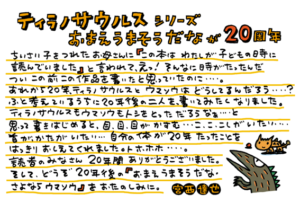 ティラノサウルス シリーズ
おまえうまそうだな が 20周年
ちいさい子をつれたお母さんに『この本は わたしが子どもの日寺に
読んでいました』と言われて、えっ! そんなに日寺がたったんだ
つい この前 この作品を書いたと思っていたのに…。
あれから20年、ティラノサウルスとウマソウは どうしてるんだろう…?
ふと考えているうちに20年後の二人を書いてみたくなりました。
ティラノサウルスもウマソウも年をとっただろうな…と
思って書きはじめると、目、目、目がかすむ…こ、こ、こしがいたい…、
書がかたがいたい… 自分の体が20年 たったことを
はっきり おしえてくれました。トホホホ…。
読者のみなさん 20年間 ありがとうございました。
そして、どうぞ 20年後の『おまえうまそうだな
さよならウマソウ』を おたのしみに。
宮西達也